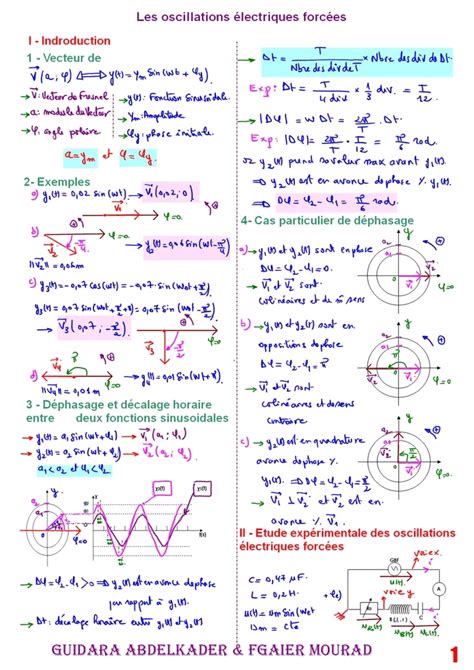 Les oscillations électriques forcées
I - Indroduction
1 - Vecteur de
V⃗(a, φ) ⟺ y(t) = ym Sin(wt + φy)
→ V⃗: Vecteur de Fresnel
→ y(t): Fonction Sinusoïdale.
a: module du Vecteur
→ ym: Amplitude
φ: angle polaire
→ φy: phase initiale.
a = ym et φ = φy.
2- Exemples
a) y1(t) = 0,02 sin(wt) → V1⃗(0,02; 0).
φ=0.
b)
φ=0.
→ y2(t) = 0,06 sin(wt - π/4)
V2⃗
||V2⃗|| = 0,06m
c)
y3(t) = 0,07 sin(wt
→ V3⃗(0,07; -π/2)
V3⃗
-π/2
φ=0
d)
||V4⃗|| = 0,01m
3 - Déphasage et décalage horaire
entre deux fonctions sinusoidales
→ y1(t) = a1 sin(wt + φ1) → V1⃗(a1; φ1)
→ y2(t) = a2 sin(wt + φ2) → V2⃗(a2; φ2)
a1 < a2 et φ1 < φ2.
y
y2(t)
y1(t)
φ=0
t(s)
→ Δφ = φ2 - φ1 > 0 ⇒ y2(t) est en avance de phase
par rapport à y1(t).
→ Δt: décalage horaire entre y1(t) et y2(t)
→ Δt = T / Nbre des div de T × Nbre des div de Δt.
Exp: Δt = T / 4 div × 1/3 div. = T/12
→ |Δφ| = w Δt = 2π/T . Δt.
Exp: |Δφ| = 2π/T . T/12 = π/6 rad.
or y2(t) prend sa valeur max avant y1(t).
⇒ y2(t) est en avance de phase % y1(t).
⇒ Δφ = φ2 - φ1 = π/6 rad.
4- Cas particulier de déphasage
a) → y1(t) et y2(t) sont en phase
Δφ = φ2 - φ1 = 0.
→ V1⃗ et V2⃗ sont
colinéaires et de m̂ sens
b) → y1(t) et y2(t) sont en
oppositions de phase
Δφ = φ2 - φ1 = π.
→ V1⃗ et V2⃗ sont
colinéaires et de sens
contraire
c) → y2(t) est en quadrature
avance de phase %
y1(t). ⇒ Δφ = φ2 - φ1 = π/2
→ V1⃗ ⊥ V2⃗ et V2⃗ est en
avance % V1⃗.
II - Etude expérimentale des oscillations
électriques forcées
C = 0,47 µF.
L = 0,2 H.
Um = Cte
GBF
A
C
GUIDARA ABDELKADER & FGAIER MOURAD
1